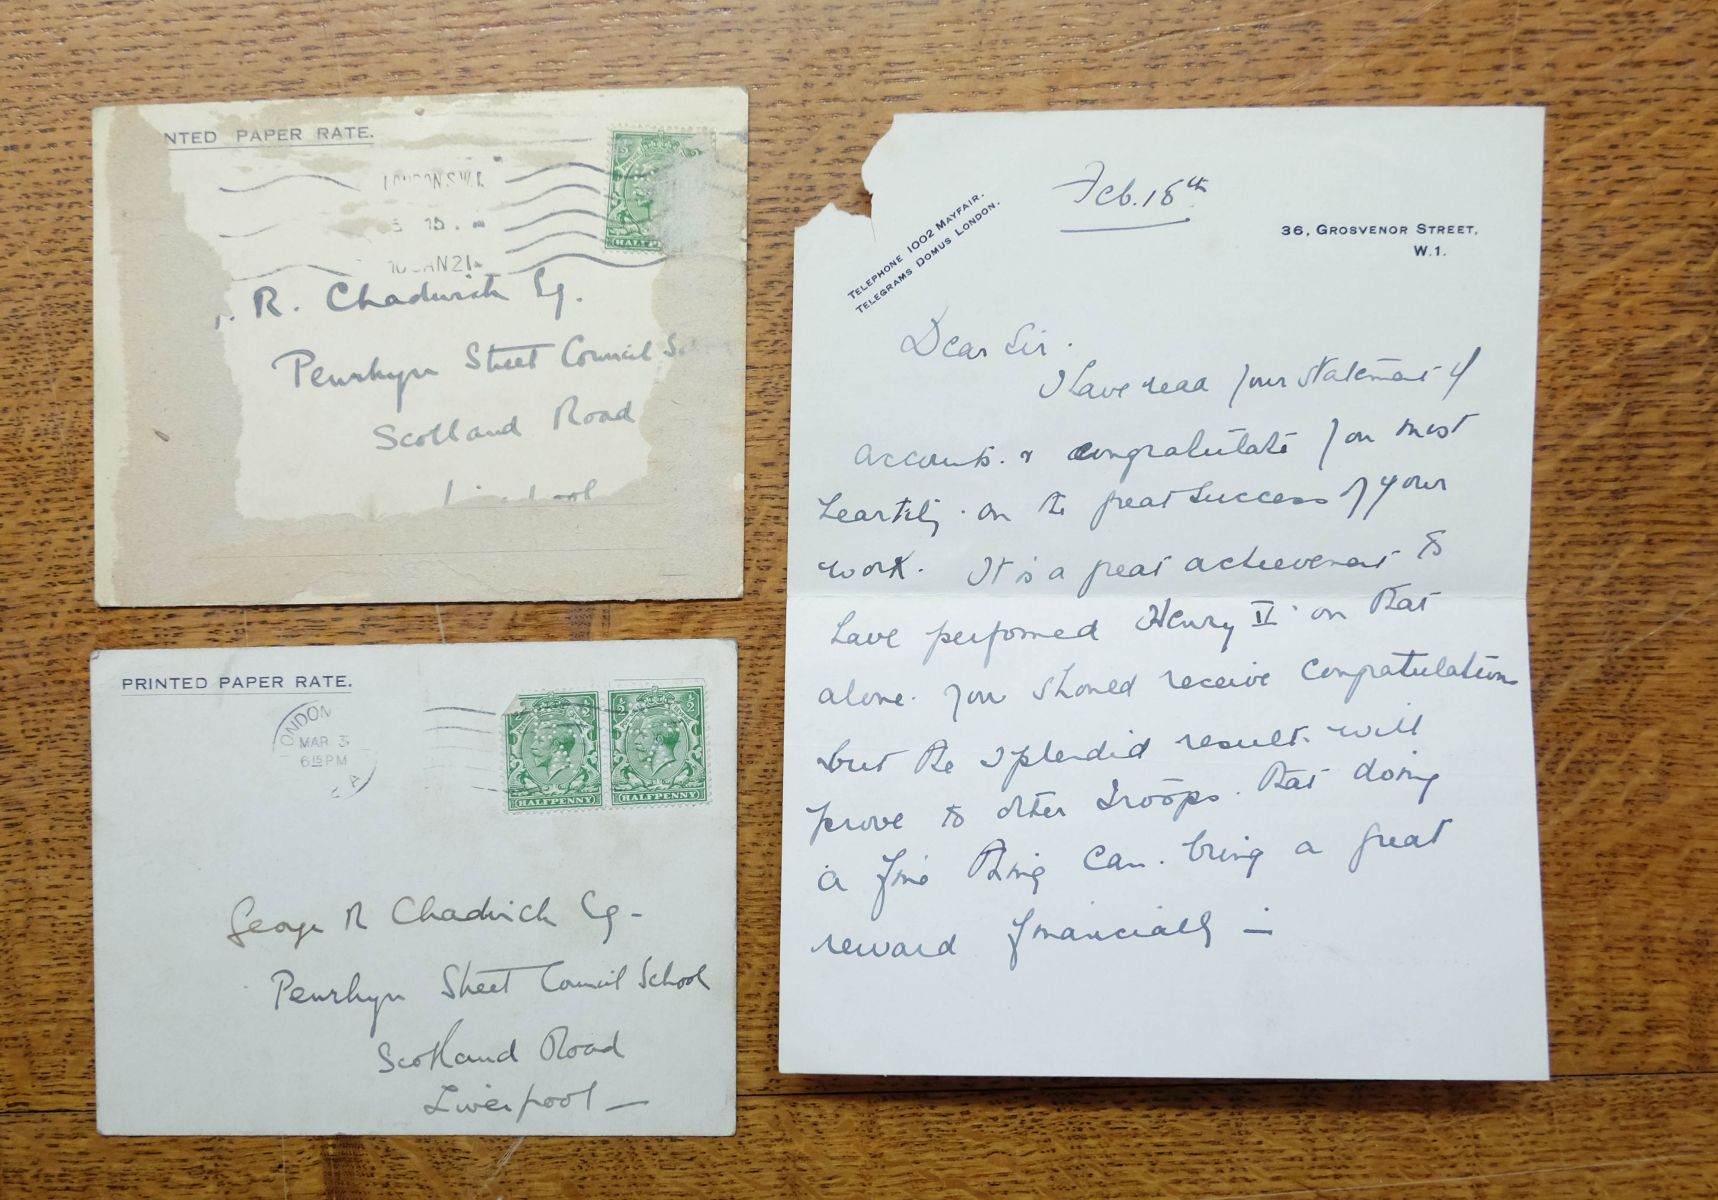 NTED PAPER RATE.
LONDON S.W.1.
15.
10 JAN 21
HALFPE
. R. Chadwick Esq.
Penrhyn Street Council S
Scotland Road
Liverpool
PRINTED PAPER RATE.
ONDON
MAR 3
6 15 PM
HALFPENNY HALFPENNY
George R Chadwick Esq -
Penrhyn Street Council School
Scotland Road
Liverpool —
Feb. 18th
TELEPHONE 1002 MAYFAIR.
TELEGRAMS DOMUS LONDON.
36, GROSVENOR STREET,
W.1.
Dear Sir.
I have read your statement of
accounts. & congratulate you most
heartily. on the great success of your
work. It is a great achievement to
have performed Henry V. on that
alone. you should receive congratulations
but the splendid result. will
prove to other Troops. that doing
a fine thing can. bring a great
reward financially —